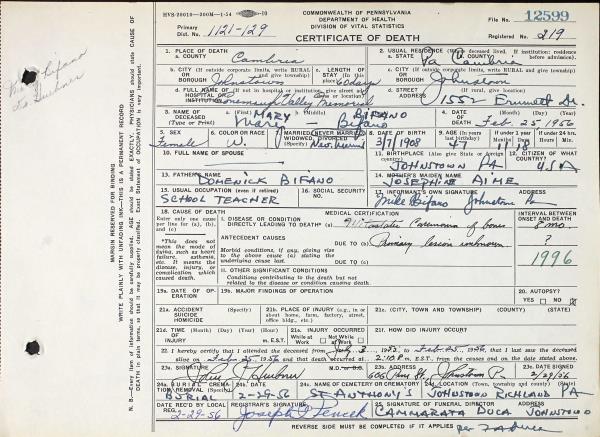 HVS-20010—200M—1-54
COMMONWEALTH OF PENNSYLVANIA
DEPARTMENT OF HEALTH
DIVISION OF VITAL STATISTICS
File No. 12599
Primary
Dist. No. 1121-129
CERTIFICATE OF DEATH
Registered No. 219
1. PLACE OF DEATH
a. COUNTY Cambria
2. USUAL RESIDENCE (Where deceased lived. If institution: residence before admission).
Pa Cambria
b. CITY (If outside corporate limits, write RURAL and give township)
OR BOROUGH Johnstown
c. LENGTH OF STAY (In this place) 60 days
c. CITY (If outside corporate limits, write RURAL and give township)
OR BOROUGH Johnstown
HOSPITAL OR INSTITUTION Conemaugh Valley Memorial
d. STREET ADDRESS (If rural, give location)
1552
3. NAME OF DECEASED (Type or Print)
MARY BIFANO
Mary Bifano
4. DATE OF DEATH (Month) (Day) (Year)
Feb. 25 1956
5. SEX Female
6. COLOR OR RACE W.
7. MARRIED, NEVER MARRIED, WIDOWED, DIVORCED
8. DATE OF BIRTH 3/7/1908
9. AGE (In years last birthday) 47
If under 1 year Months Days 11 18
If under 24 hrs. Hours Min.
10. FULL NAME OF SPOUSE
11. BIRTHPLACE (Also give State or foreign country)
JOHNSTOWN PA
12. CITIZEN OF WHAT COUNTRY?
USA
13. FATHER'S NAME
DOMENICK BIFANO
14. MOTHER'S MAIDEN NAME
JOSEPHINE AIME
15. USUAL OCCUPATION (even if retired)
SCHOOL TEACHER
16. SOCIAL SECURITY NO.
17. INFORMANT'S OWN SIGNATURE ADDRESS
Mike Bifano Johnstown Pa
18. CAUSE OF DEATH
MEDICAL CERTIFICATION
INTERVAL BETWEEN ONSET AND DEATH
Enter only one cause per line for (a), (b) and (c)
I. DISEASE OR CONDITION DIRECTLY LEADING TO DEATH* (a) Metastatic Carcinoma of bones
8 mo
*This does not mean the mode of dying, such as heart failure, asthenia, etc. It means the disease, injury, or complication which caused death.
ANTECEDENT CAUSES
DUE TO (b) Primary lesion unknown
?
Morbid conditions, if any, giving rise to the above cause (a) stating the underlying cause last.
DUE TO (c)
1996
II. OTHER SIGNIFICANT CONDITIONS
Conditions contributing to the death but not related to the disease or condition causing death.
19a. DATE OF OPERATION
19b. MAJOR FINDINGS OF OPERATION
20. AUTOPSY?
YES NO
21a. ACCIDENT SUICIDE HOMICIDE
21b. PLACE OF INJURY (e.g., in or about home, farm, factory, street, office bldg., etc.)
21c. (CITY, TOWN, AND TOWNSHIP) (COUNTY) (STATE)
21d. TIME OF INJURY (Month) (Day) (Year) (Hour) m. E.S.T.
21e. INJURY OCCURRED While at Work Not While at Work
21f. HOW DID INJURY OCCUR?
22. I hereby certify that I attended the deceased from July 3, to Feb. 25, 1956, that I last saw the deceased
alive on Feb 25, 1956, and that death occurred at 2:10P m. E.S.T., from the causes and on the date stated above.
23a. SIGNATURE
M.D.
23b. ADDRESS
Johnstown Pa
23c. DATE SIGNED
2/29/56
24a. BURIAL, CREMATION, REMOVAL
BURIAL
24b. DATE
2-29-56
24c. NAME OF CEMETERY OR CREMATORY
ST ANTHONY'S
24d. LOCATION (Town, township and county) (State)
JOHNSTOWN RICHLAND PA
DATE REC'D BY LOCAL REG.
2-29-56
REGISTRAR'S SIGNATURE
25. SIGNATURE OF FUNERAL DIRECTOR ADDRESS
CAMMARATA DUCA JOHNSTOWN
REVERSE SIDE MUST BE COMPLETED IF IT APPLIES
MARGIN RESERVED FOR BINDING
WRITE PLAINLY WITH UNFADING INK—THIS IS A PERMANENT RECORD